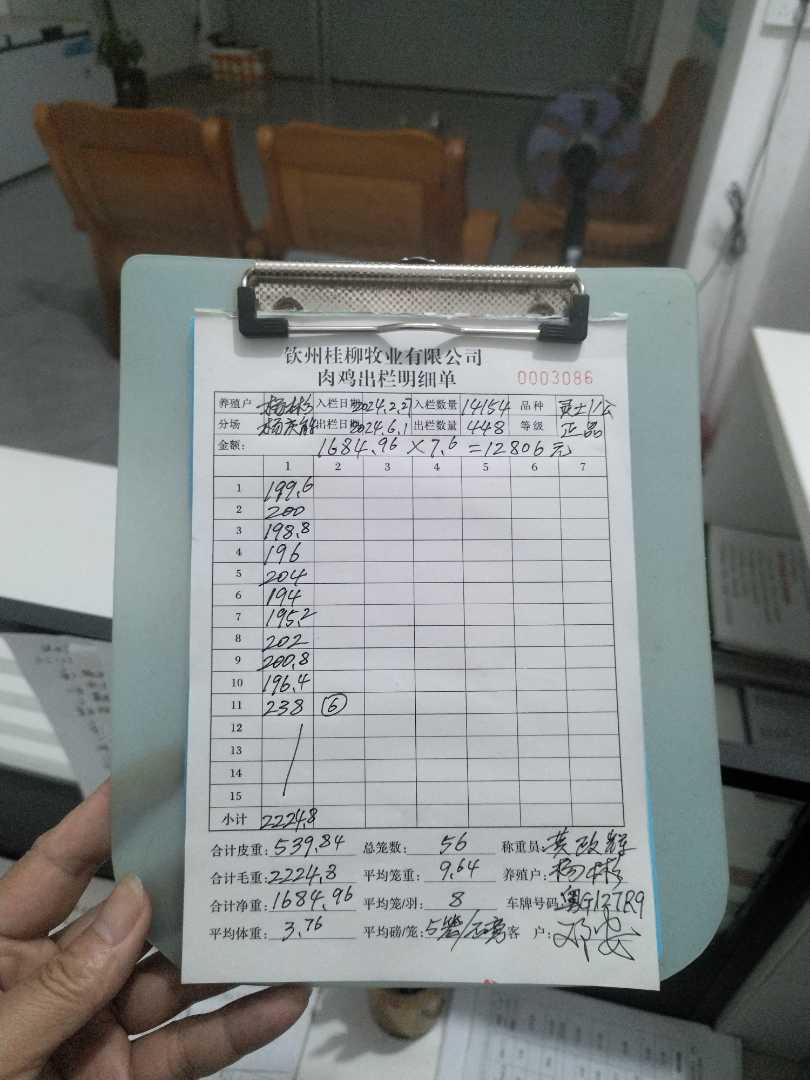 钦州桂柳牧业有限公司
肉鸡出栏明细单 0003086
养殖户 杨彬 入栏日期 2024.2.27 入栏数量 14154 品种
分场 出栏日期 2024.6.1 出栏数量 448 等级 正品
金额: 1684.96 × 7.6 = 12806元
1 2 3 4 5 6 7
1 199.6
2 200
3 198.8
4 196
5 204
6 194
7 195.2
8 202
9 200.8
10 196.4
11 238 ⑥
12
13
14
15
小计 2224.8
合计皮重: 539.84 总笼数: 56 称重员:
合计毛重: 2224.8 平均笼重: 9.64 养殖户: 杨彬
合计净重: 1684.96 平均笼/羽: 8 车牌号码:
平均体重: 3.76 平均磅/笼: 客 户: